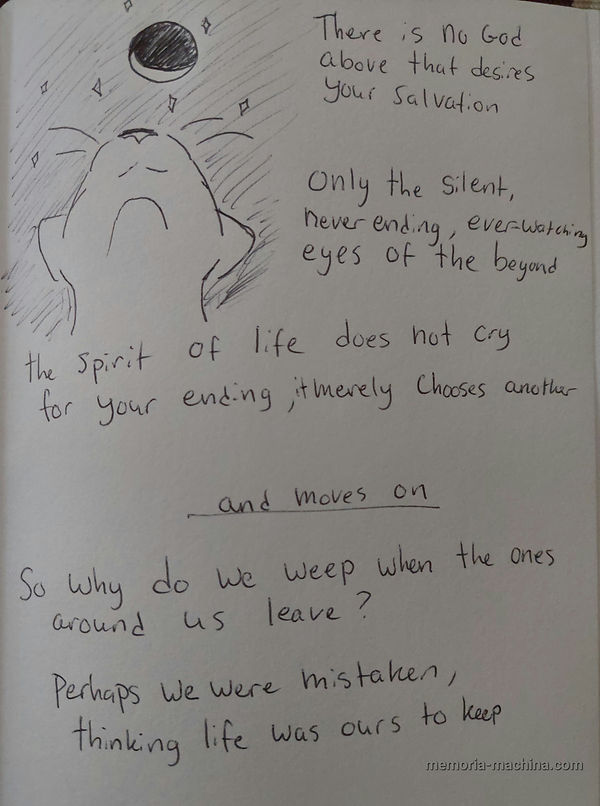 There is no God
above that desires
your salvation
Only the silent,
never ending, ever-watching
eyes of the beyond
the spirit of life does not cry
for your ending, it merely chooses another
and moves on
So why do we weep when the ones
around us leave?
Perhaps we were mistaken,
thinking life was ours to keep
memoria-machina.com